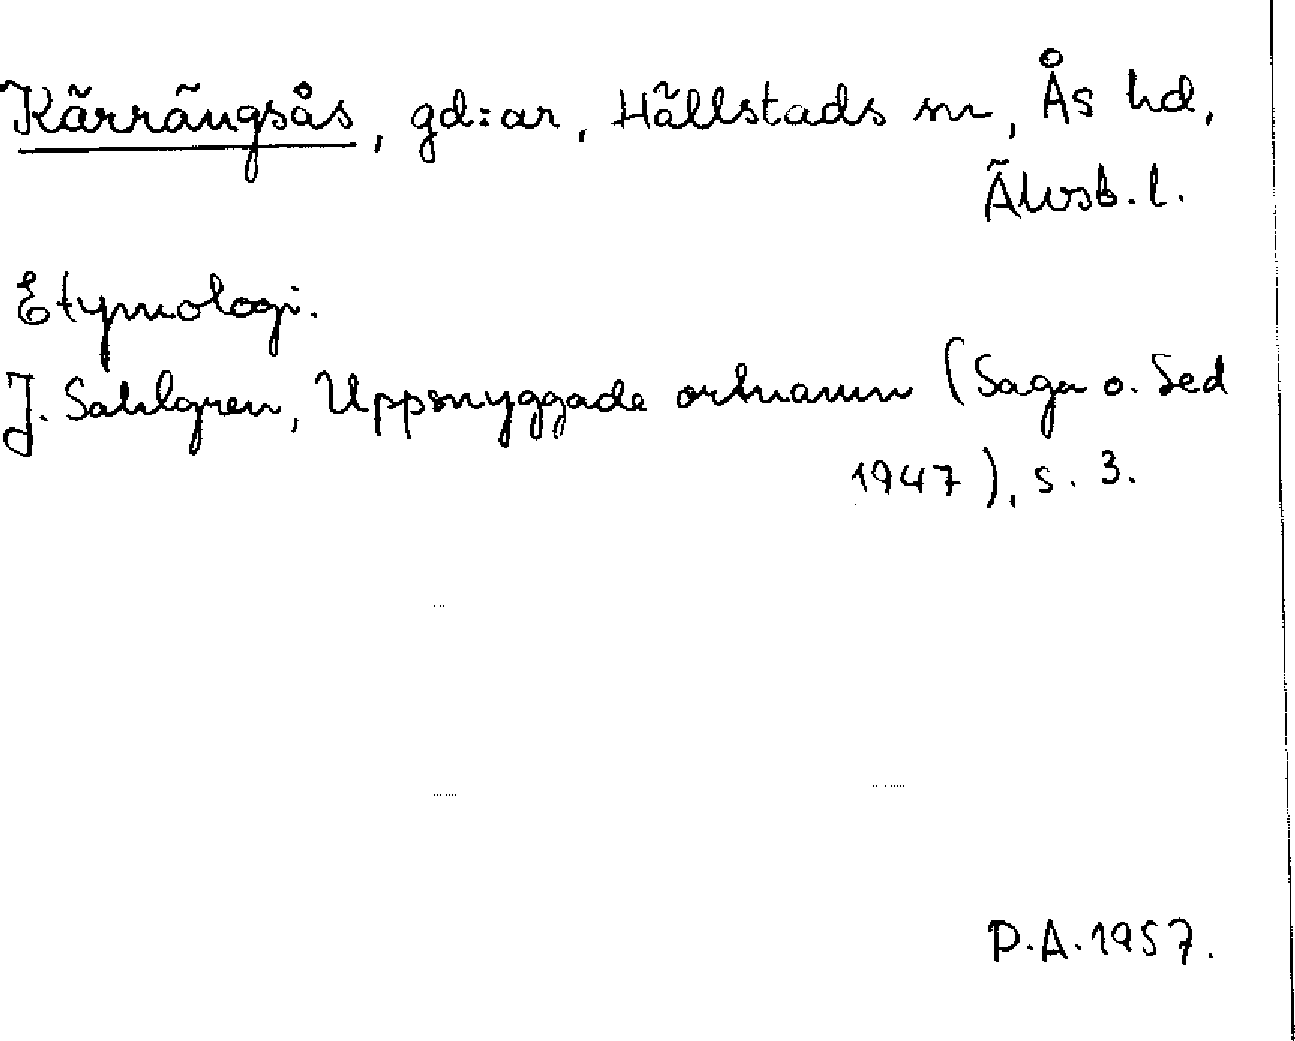 Kärrängsås, gd:ar, Hällstads sn, Ås hd,
Älvsb. l.
Etymologi.
J. Sahlgren, Uppsnyggade ortnamn (Saga o. Sed
1947), s. 3.
P.A. 1957.